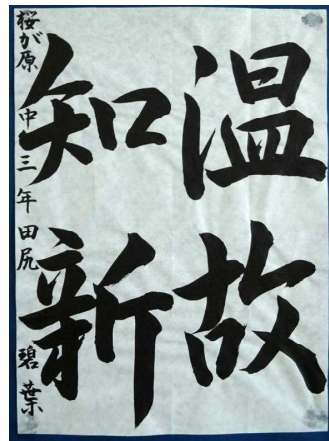 温故
知新
桜が原 中三年 田尻 碧葉